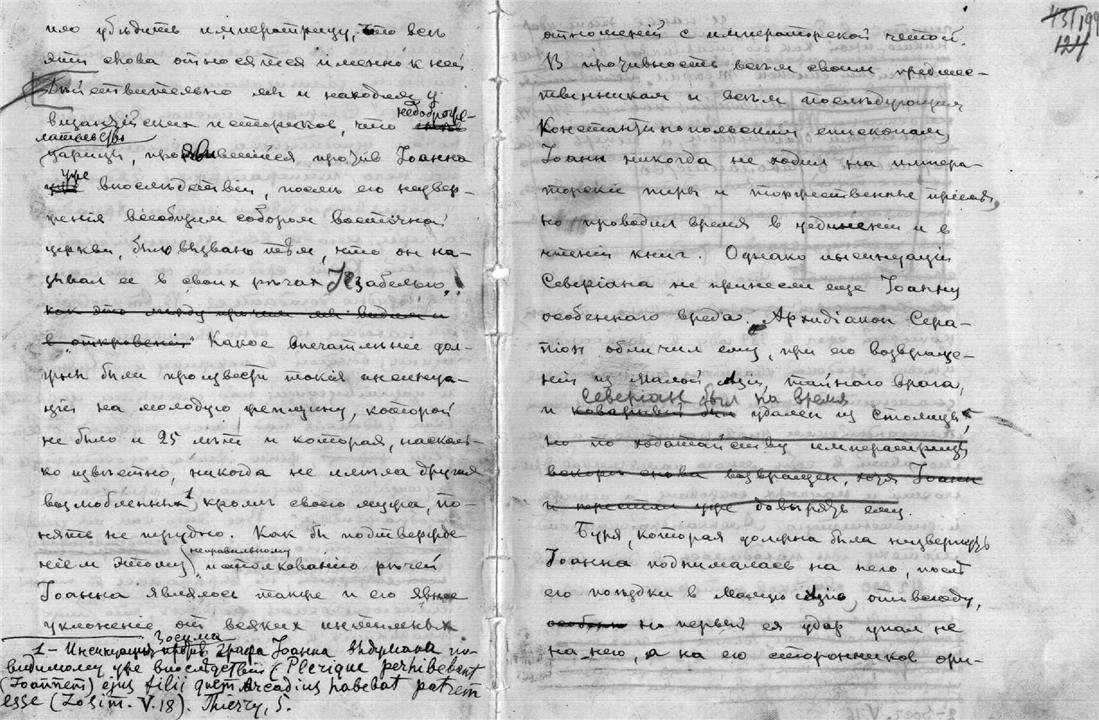 ило убѣдить императрицу, что всѣ
эти слова относятся именно к ней.
Дѣйствительно мы и находим у
византійских историков, что
недоброже-
лательство
царицы, проявившейся против Іоанна
уже
впослѣдствіи, послѣ его низвер-
женія вселобщим собором восточной
церкви, было вызвано тѣм, что он на-
зывал ее в своих рѣчах Іезабелью.
как это между прочим мы видим и
в „откровеніи“ Какое впечатлѣніе дол-
жны были произвести такія инсинуа-
ціи на молодую женщину, которой
не было и 25 лѣт и которая, насколь-
ко извѣстно, никогда не имѣла других
возлюбленных¹, кромѣ своего мужа, по-
нять не трудно. Как бы подтвержде-
неправильному
ніем этому истолкованію рѣчей
Іоанна являлось также и его явное
уклоненіе от всяких интимных
Зосима
1 – Инсинуація против графа Іоанна выдумана по-
видимому уже впослѣдствіи (Plerique perhibebant
(Joannem) ejus filii quem Arcadius habebat patrem
esse (Zosim. V. 18). Thierry, 5.
199
124
отношеній с императорской четой.
В противность всѣм своим предшес-
твенникам и всѣм послѣдующим
Константинопольским епископам,
Іоанн никогда не ходил на импера-
торскіе пиры и торжественные пріемы,
но проводил время в уединеніи и в
чтеніи книг. Однако инсинуаціи
Северіана не принесли еще Іоанну
особеннаго вреда. Архидіакон Сера-
піон обличил ему, при его возвраще-
ніи из Малой Азіи, тайнаго врага,
Северіан был на время
и коварный был удален из столицы,
но по ходатайству императрицы
вскорѣ снова возвращен, хотя Іоанн
и перестал уже довѣрять ему.
Буря, которая должна была низвергнуть
Іоанна поднималась на него, послѣ
его поѣздки в Малую Азію, отовсюду,
но первый ея удар упал не
на него, а на его сторонников ори-